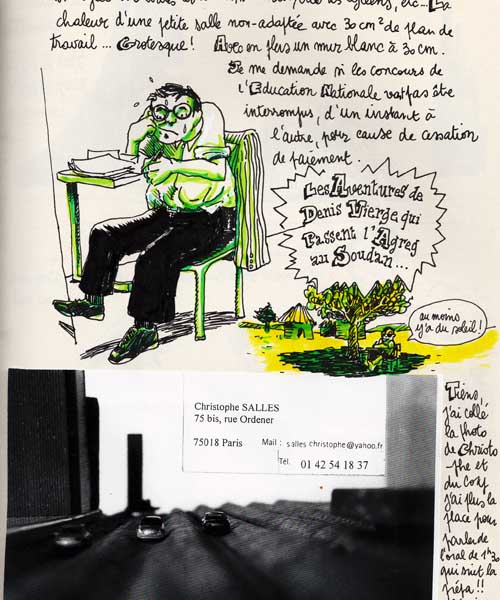 etc... La
chaleur d'une petite salle non-adaptée avec 30 cm² de plan de
travail... Grotesque! Avec en plus un mur blanc à 30 cm.
Je me demande si les concours de
l'Education Nationale vont pas être
interrompus, d'un instant à
l'autre, pour cause de cessation
de paiement.
Les Aventures de
Denis Vierge qui
Passent l'Agreg
au Soudan...
au moins
y'a du soleil!
Christophe SALLES
75 bis, rue Ordener
75018 Paris Mail : salles christophe@yahoo.fr
Tél. 01 42 54 18 37
Tiens,
j'ai collé
la photo
de Christo
-phe et
du coup
j'ai plus la
place pour
parler de
l'oral de 1h30
qui suit la
prépa!!